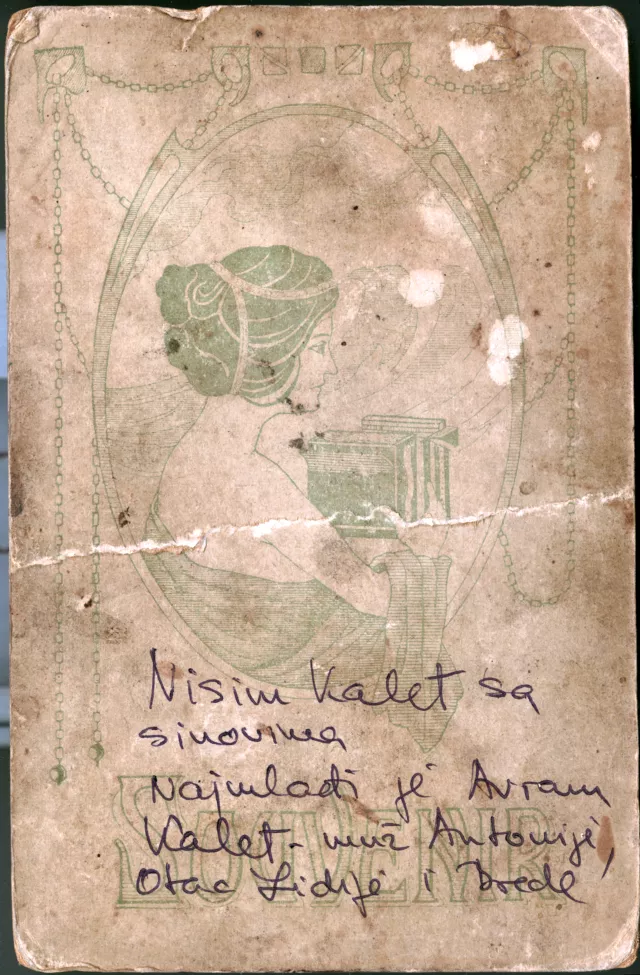 Nisim Kalef sa
sinovima
Najmlađi je Avram
Kalef - muž Antonije,
Otac Lidije i Brede
SOUVENIR